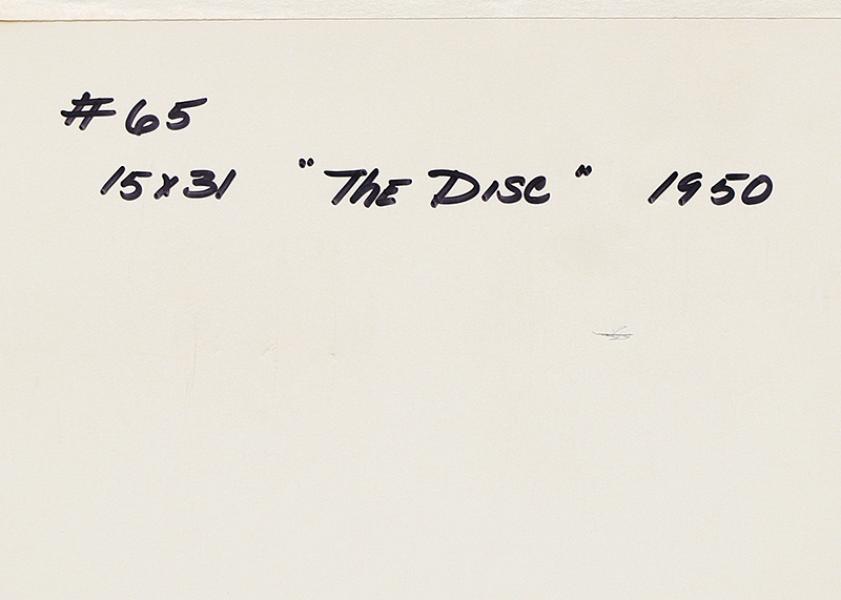 #65
15x31 "The Disc" 1950